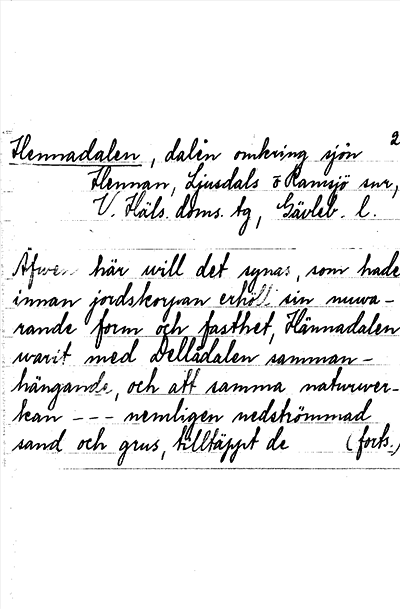 2
Hennadalen, dalen omkring sjön
Hennan, Ljusdals o Ramsjö snr,
V. Häls. doms. tg, Gävleb. l.
Äfwen här will det synas, som hade
innan jordskorpan erhöll sin nuwa-
rande form och fasthet, Hännadalen
warit med Delladalen samman-
hängande, och att samma naturwer-
kan --- nemligen nedströmmad
sand och grus, tilltäppt de (forts.)